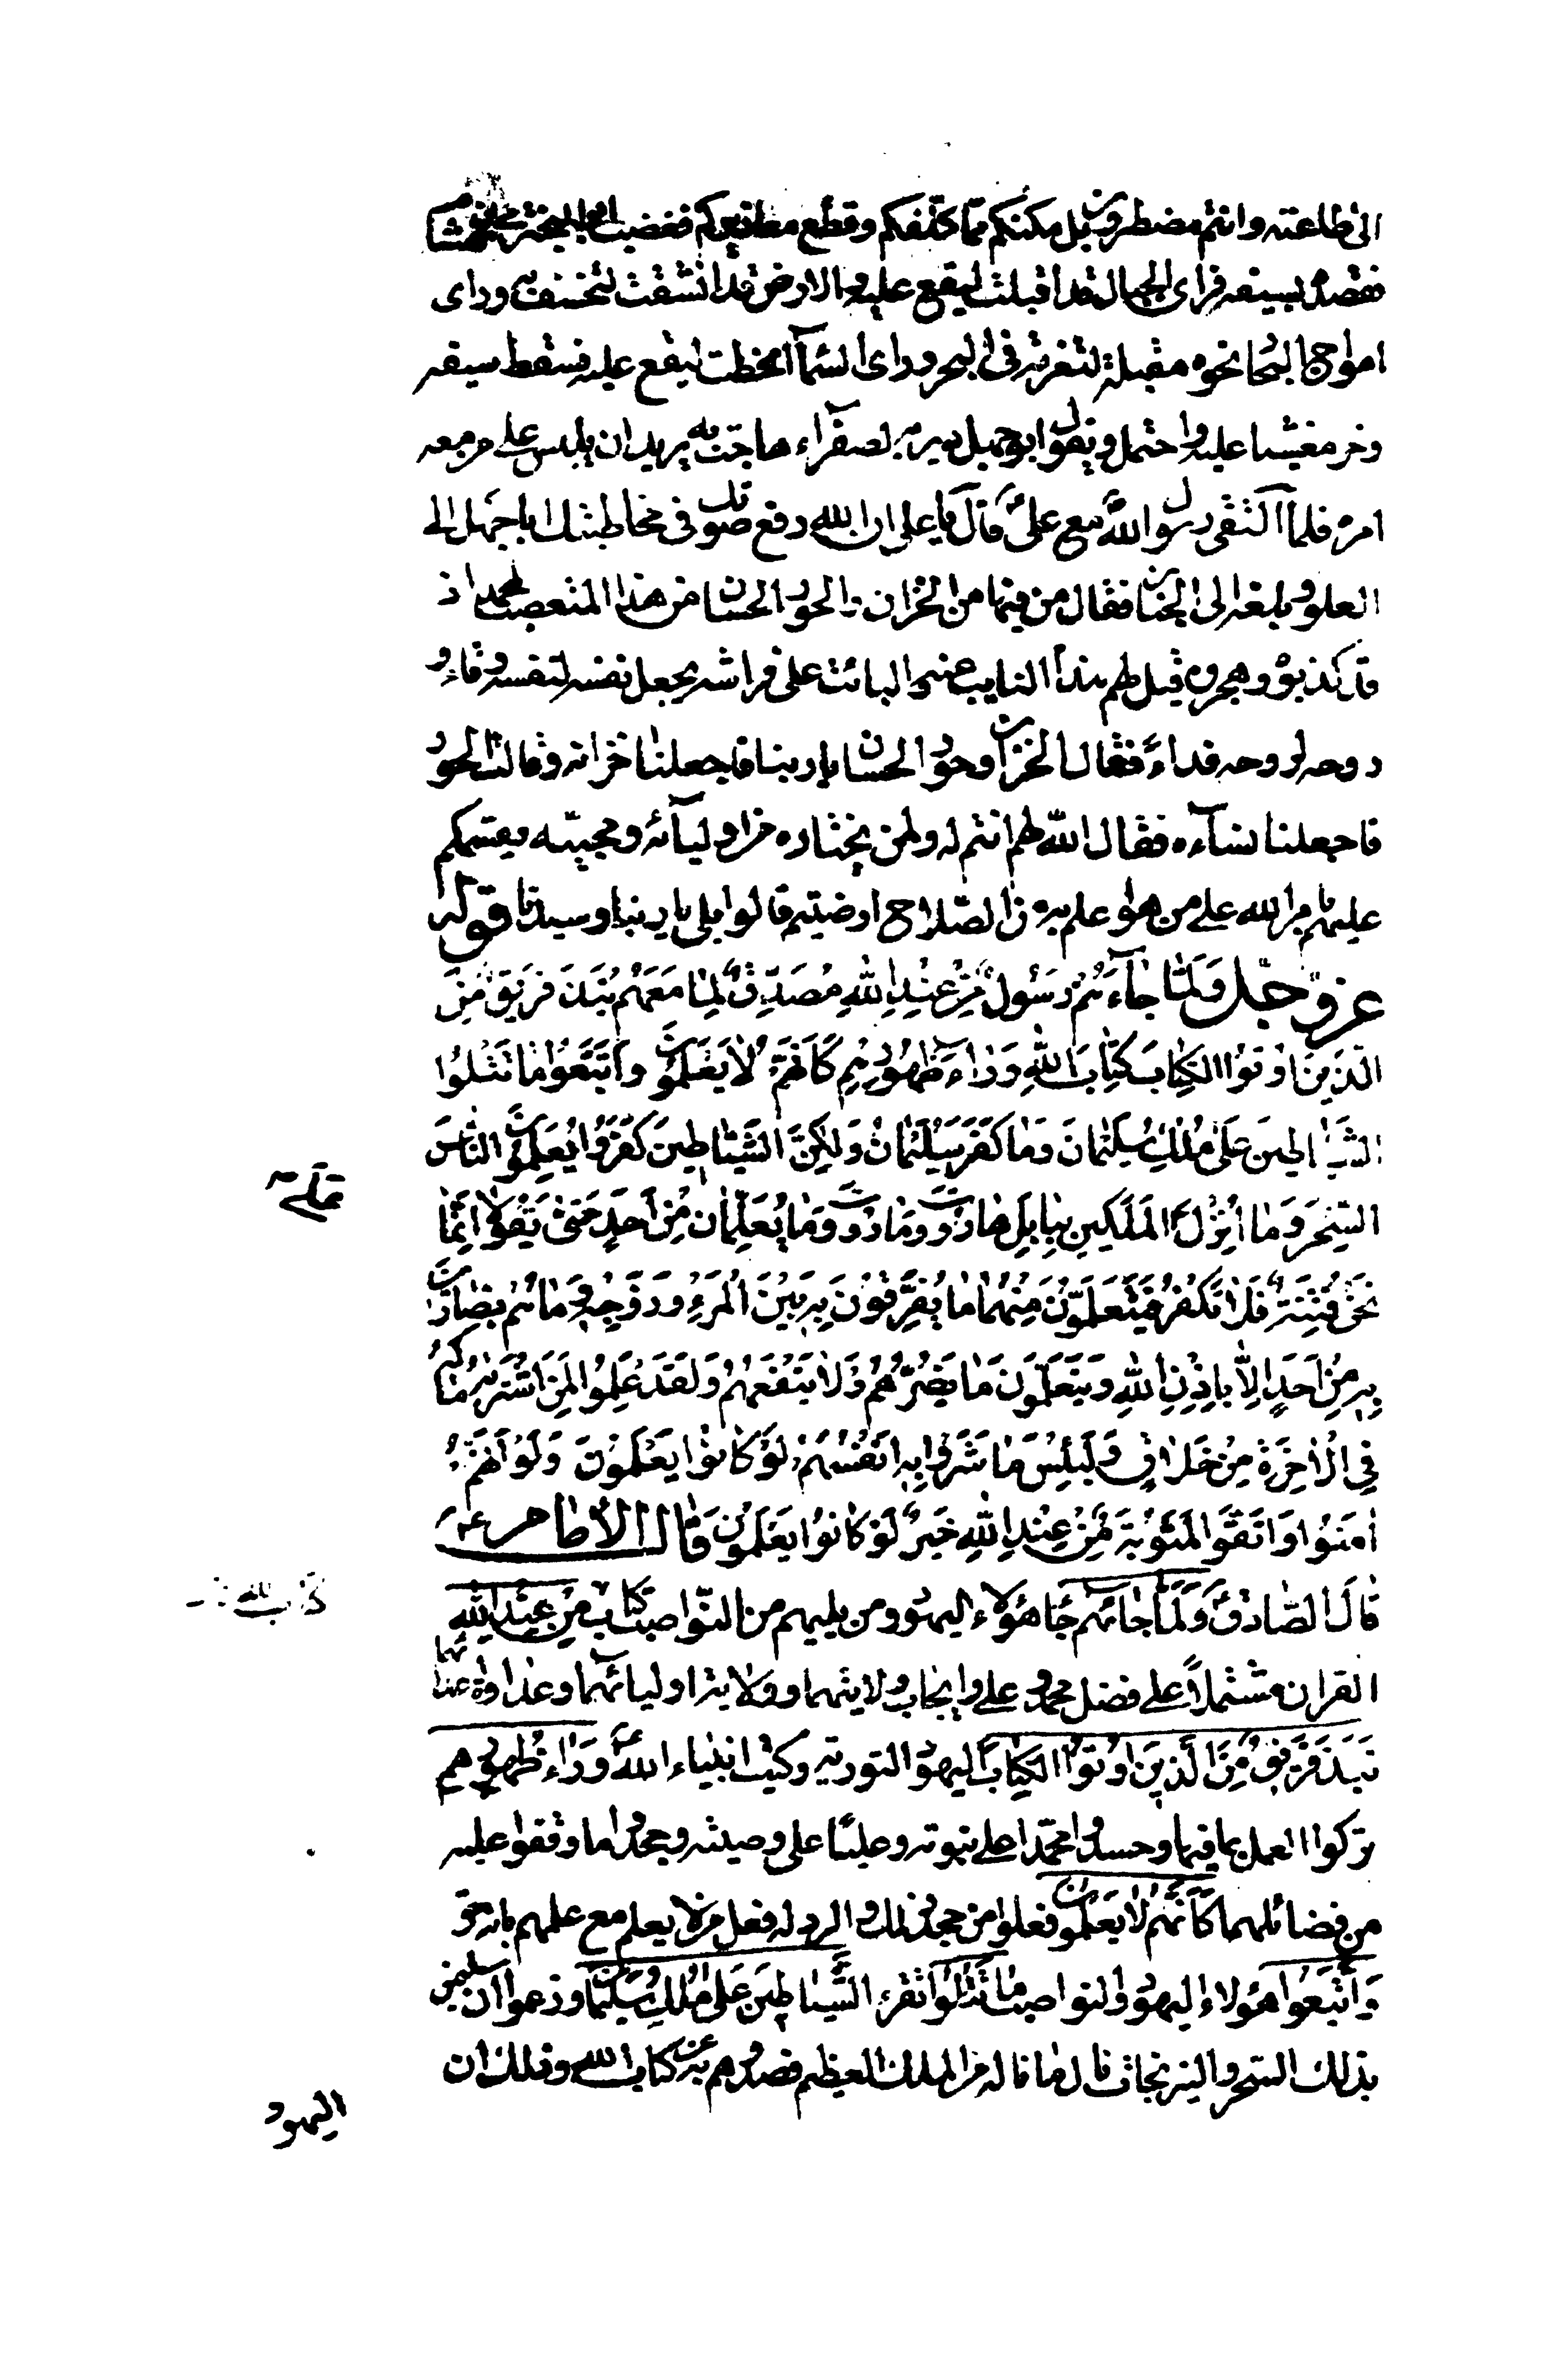 الى طاعته وانتم مضطرون بل مكنكم مما كلفكم وقطع معاذيركم فغضب ابو البختري بن هشام
فقصده بسيفه فراى الجبال قد اقبلت ليقع عليه والارض قد انشقت لتخسف به وراى
امواج البحار نحوه مقبلة لتغرقه في البحر وراى السماء انحطت ليقع عليه فسقط سيفه
وخر مغشيا عليه واحتمل ويقول ابو جهل دير به لصفراء هاجت به يريد ان يلبس على من معه
امره فلما التقى رسول الله مع علي قال يا علي ان الله رفع صوتك في مخاطبتك اباجهل الى
العلو وبلغه الى الجنان فقال من فيها من الخزان والحور الحسان من هذا المتعصب لمحمد اذ
قد كذبوه وهجروه قيل لهم هذا النايب عنه والبائت على فراشه يجعل نفسه لنفسه وقاء و
روحه لروحه فداء فقال الخزان وحور الحسان يا ربنا فاجعلنا خزانه وقالت الحور
فاجعلنا نساءه فقال الله لهم انتم له ولمن يختاره من اوليائه ومحبيه يقسمكم
عليهم بامر الله على من هو اعلم به من الصلاح ارضيتم قالوا بلى يا ربنا وسيدنا قوله
عز وجل وَلَمّا جاءَهُمْ رَسُولٌ مِنْ عِنْدِ اللهِ مُصَدِّقٌ لِما مَعَهُمْ نَبَذَ فَرِيقٌ مِنَ
الَّذِينَ اُوتُوا الْكِتابَ كِتابَ اللهِ وَراءَ ظُهُورِهِمْ كَاَنَّهُمْ لا يَعْلَمُونَ وَاتَّبَعُوا ما تَتْلُوا
الشَّياطينَ عَلى مُلْكِ سُلَيْمانَ وَما كَفَرَ سُلَيْمانُ وَلكِنَّ الشَّياطينَ كَفَرُوا يُعَلِّمُونَ النّاسَ
السِّحْرَ وَما اُنْزِلَ الْمَلَكَيْنِ بِبابِلَ هارُوتَ وَمارُوتَ وَما يُعَلِّمانِ مِنْ اَحَدٍ حَتّى يَقُولا اِنَّما
على
نَحْنُ فِتْنَةٌ فَلا تَكْفُرْ فَيَتَعَلَّمُونَ مِنْهُما ما يُفَرِّقُونَ بِهِ بَيْنَ الْمَرْءِ وَزَوْجِهِ وَما هُمْ بِضارّينَ
بِهِ مِنْ اَحَدٍ اِلّا بِاِذْنِ اللهِ وَيَتَعَلَّمُونَ ما يَضُرُّهُمْ وَلا يَنْفَعُهُمْ وَلَقَدْ عَلِمُوا لَمَنِ اشْتَريهُ ما لَهُ
فِي الْاخِرَةِ مِنْ خَلاقٍ وَلَبِئْسَ ما شَرَوْا بِهِ اَنْفُسَهُمْ لَوْ كانُوا يَعْلَمُونَ وَلَوْ اَنَّهُمْ
امَنُوا وَاتَّقَوْا لَمَثُوبَةٌ مِنْ عِنْدِ اللهِ خَيْرٌ لَوْ كانُوا يَعْلَمُونَ قال الامام ع
قال الصادق وَلَمّا جاءَهُم جاء هؤلاء اليهود ومن يليهم من النواصب كتاب مِن عِنْدِ اللهِ
كتاب الله
القران مشتملا على فضل محمد وعلي وايجاب ولايتهما وولاية اوليائهما وعداوة اعدائهما
نَبَذَ فَرِيقٌ مِنَ الَّذِينَ اُوتُوا الْكِتابَ اليهود التورية وكتب انبياء الله وَراءَ ظُهُورِهِم
تركوا العمل بما فيها وحسدوا محمدا على نبوته وعليا على وصيته وجحدوا ما وقفوا عليه
من فضائلهما كَاَنَّهُم لا يَعْلَمُونَ فعلوا من جحد ذلك والرد له فعل من لا يعلم مع علمهم بانه حق
وَاتَّبَعُوا هؤلاء اليهود والنواصب ما تَتْلُوا تقرء الشَّياطينَ عَلى مُلْكِ سُلَيْمان وزعموا ان سليمن
بذلك السحر والنيرنجات نال ما ناله من الملك العظيم فصدوهم به عن كتاب الله وذلك ان
اليهود